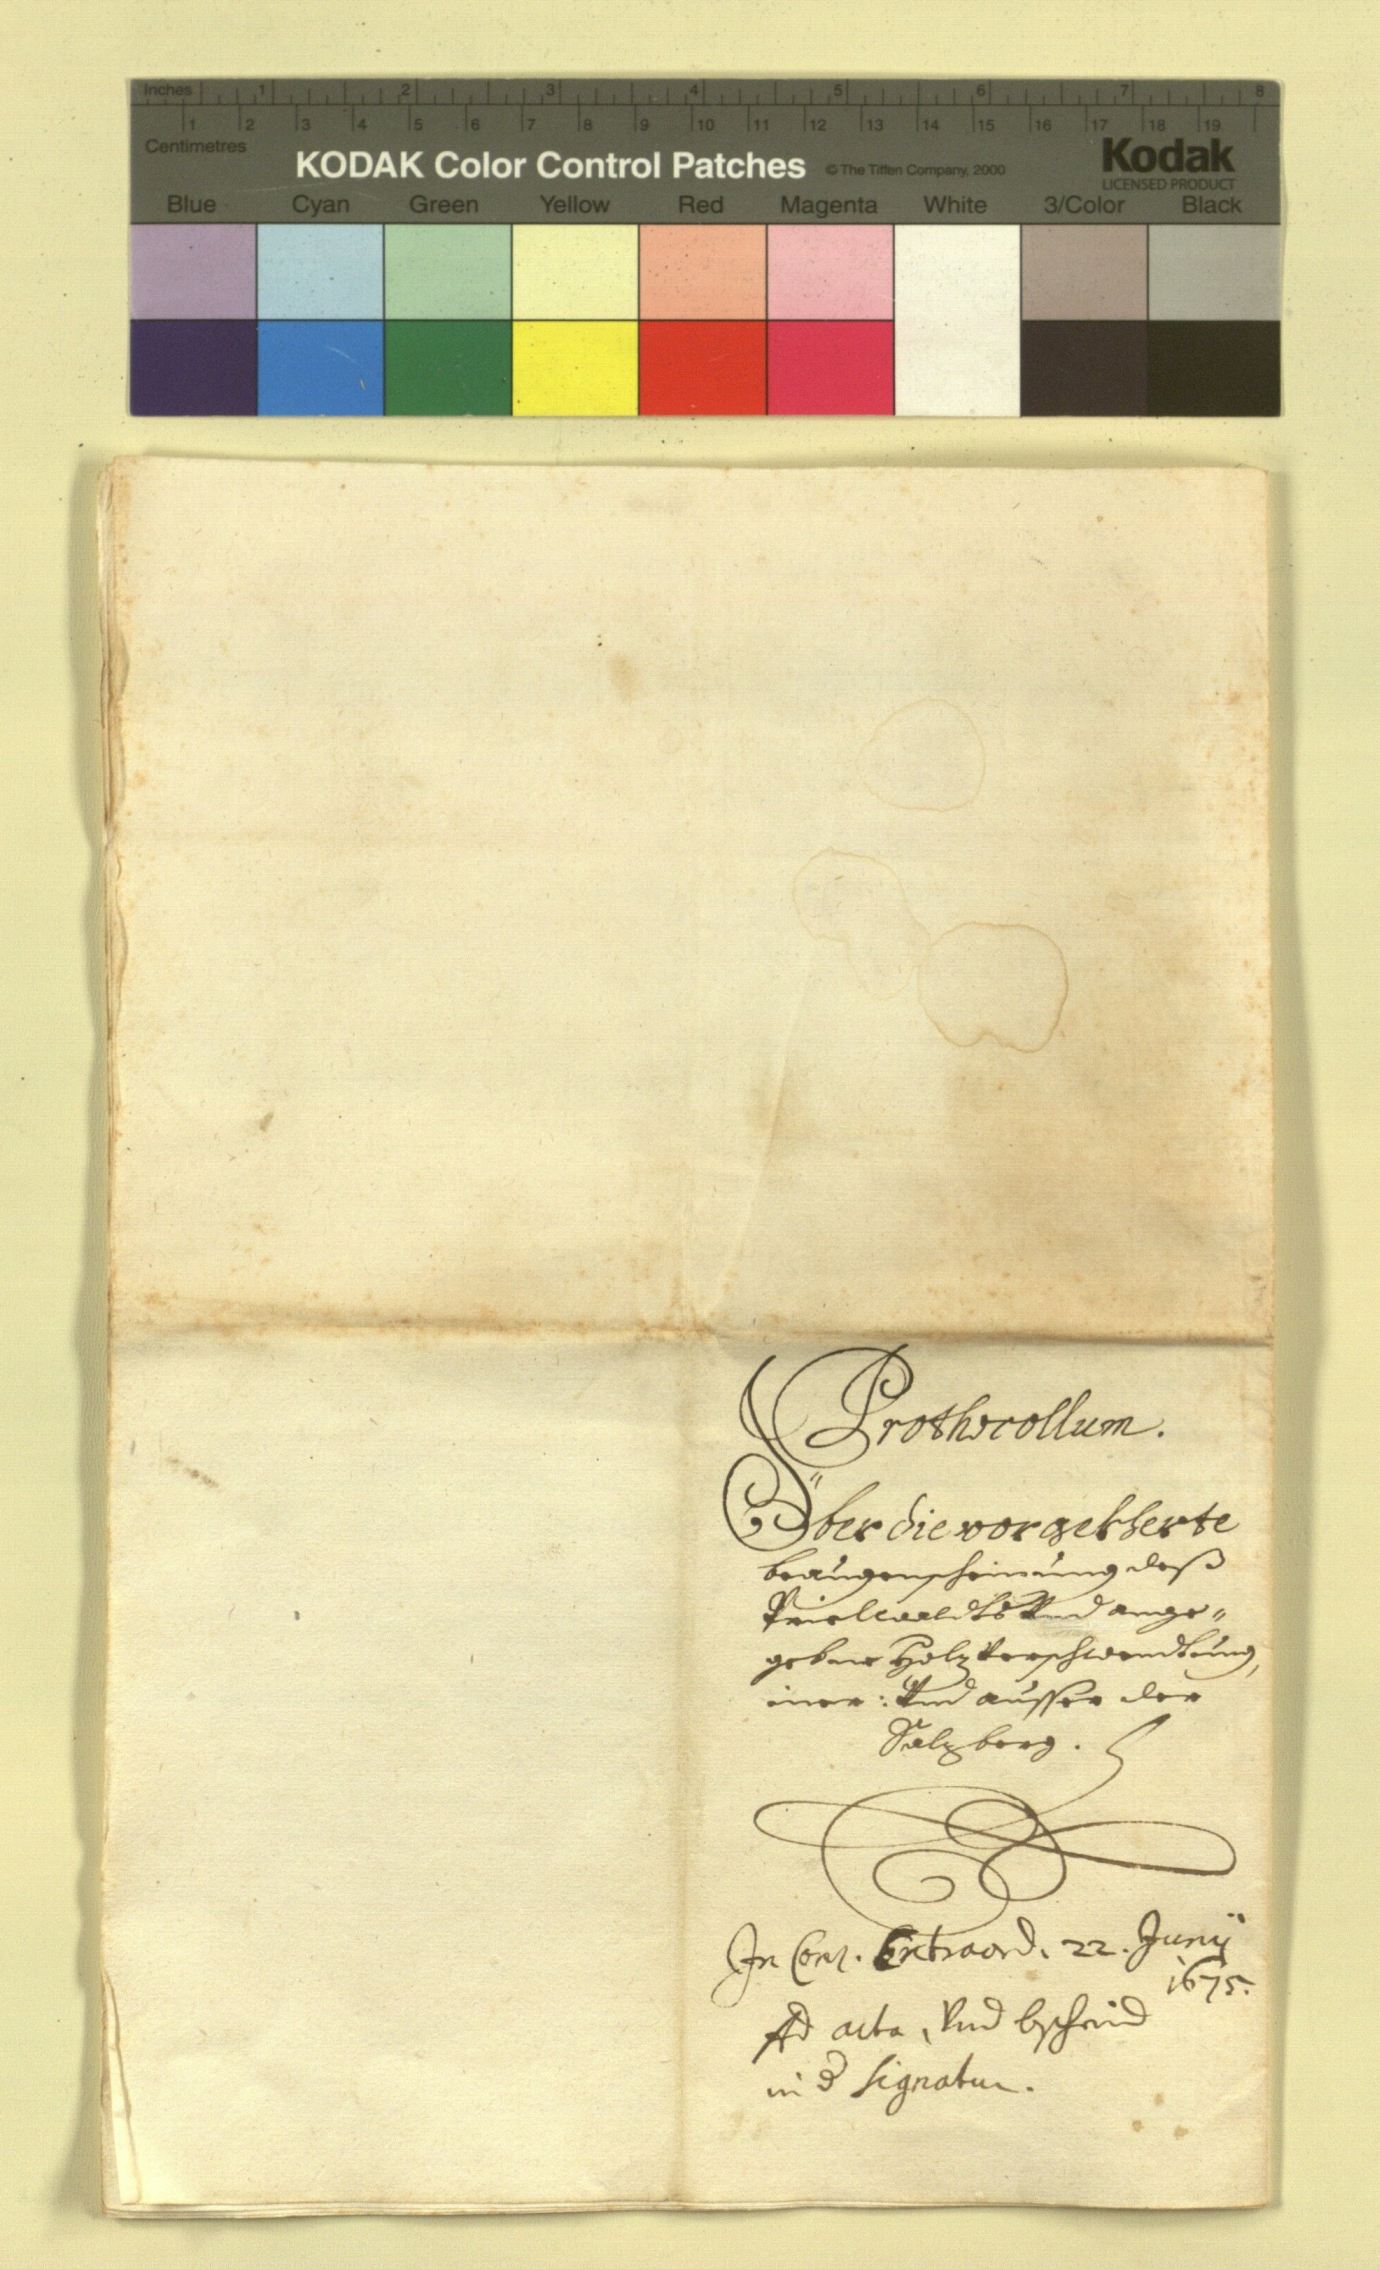 Inches 1 2 3 4 5 6 7 8
1 2 3 4 5 6 7 8 9 10 11 12 13 14 15 16 17 18 19
Centimetres
KODAK Color Control Patches © The Tiffen Company, 2000 Kodak
LICENSED PRODUCT
Blue Cyan Green Yellow Red Magenta White 3/Color Black
Prothocollum.
Über die vorgekherte
beaugenscheinung deß
Vnd ange„
gebne Holz verschwendtung,
iner: Vnd ausser der
Salzberg.
In Extraord. 22. Junÿ
1675.
Ad acta, Vnd bscheid
in d Signatur.